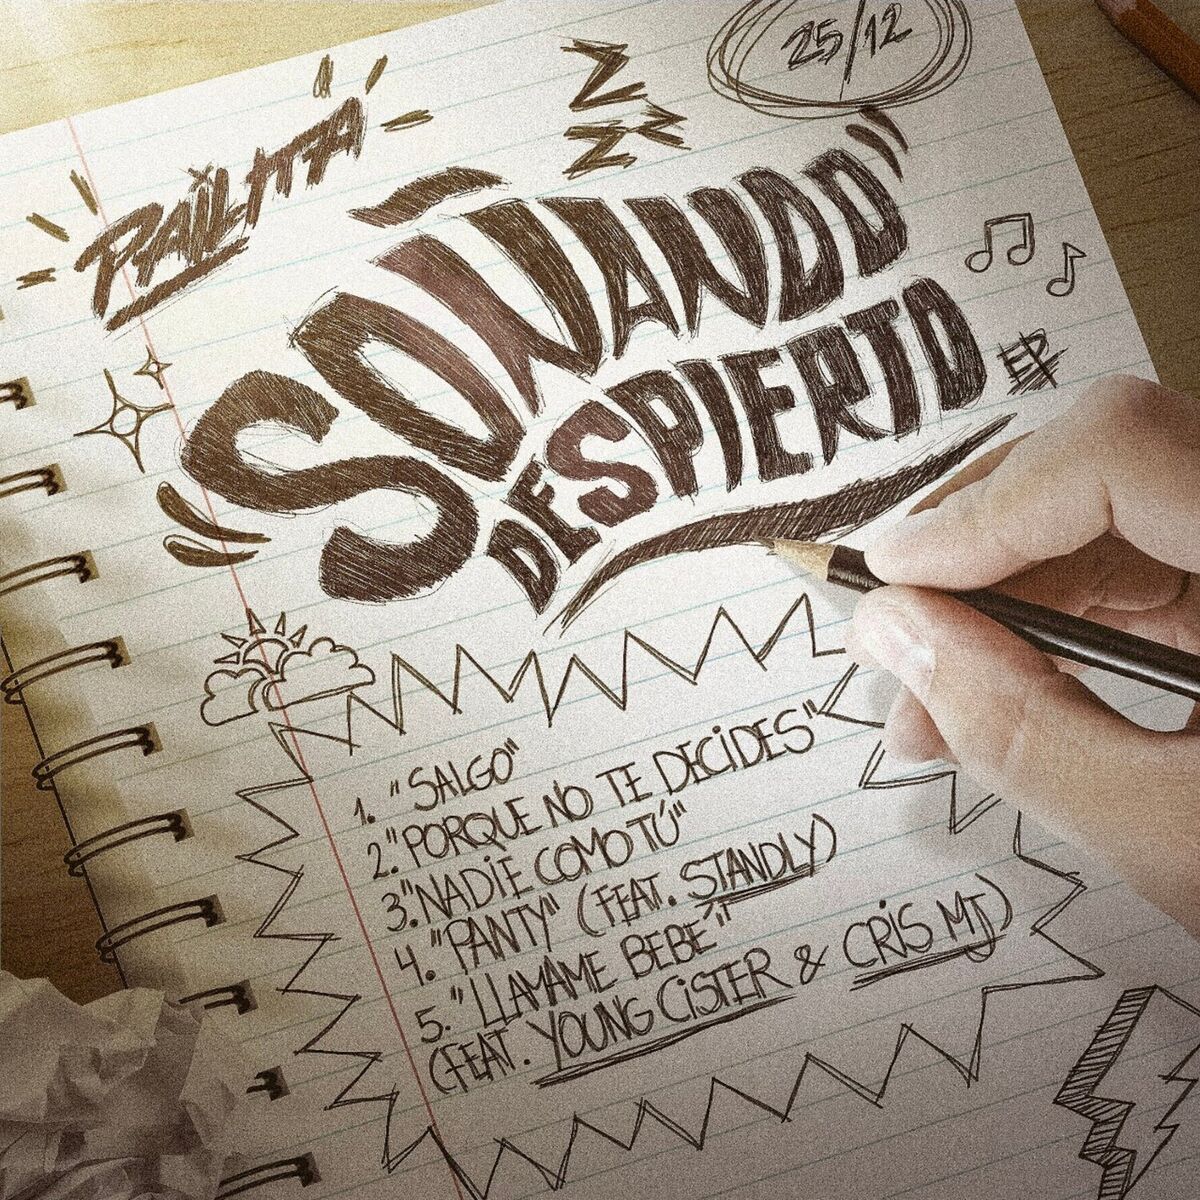 25/12
PAILITA
"SOÑANDO"
DESPIERTO
EP
1. "SALGO"
2. "PORQUE NO TE DECIDES"
3. "NADIE COMO TÚ"
4. "PANTY" (FEAT. STANDLY)
5. "LLAMAME BEBÉ"
(FEAT. YOUNG CISTER & CRIS MJ)